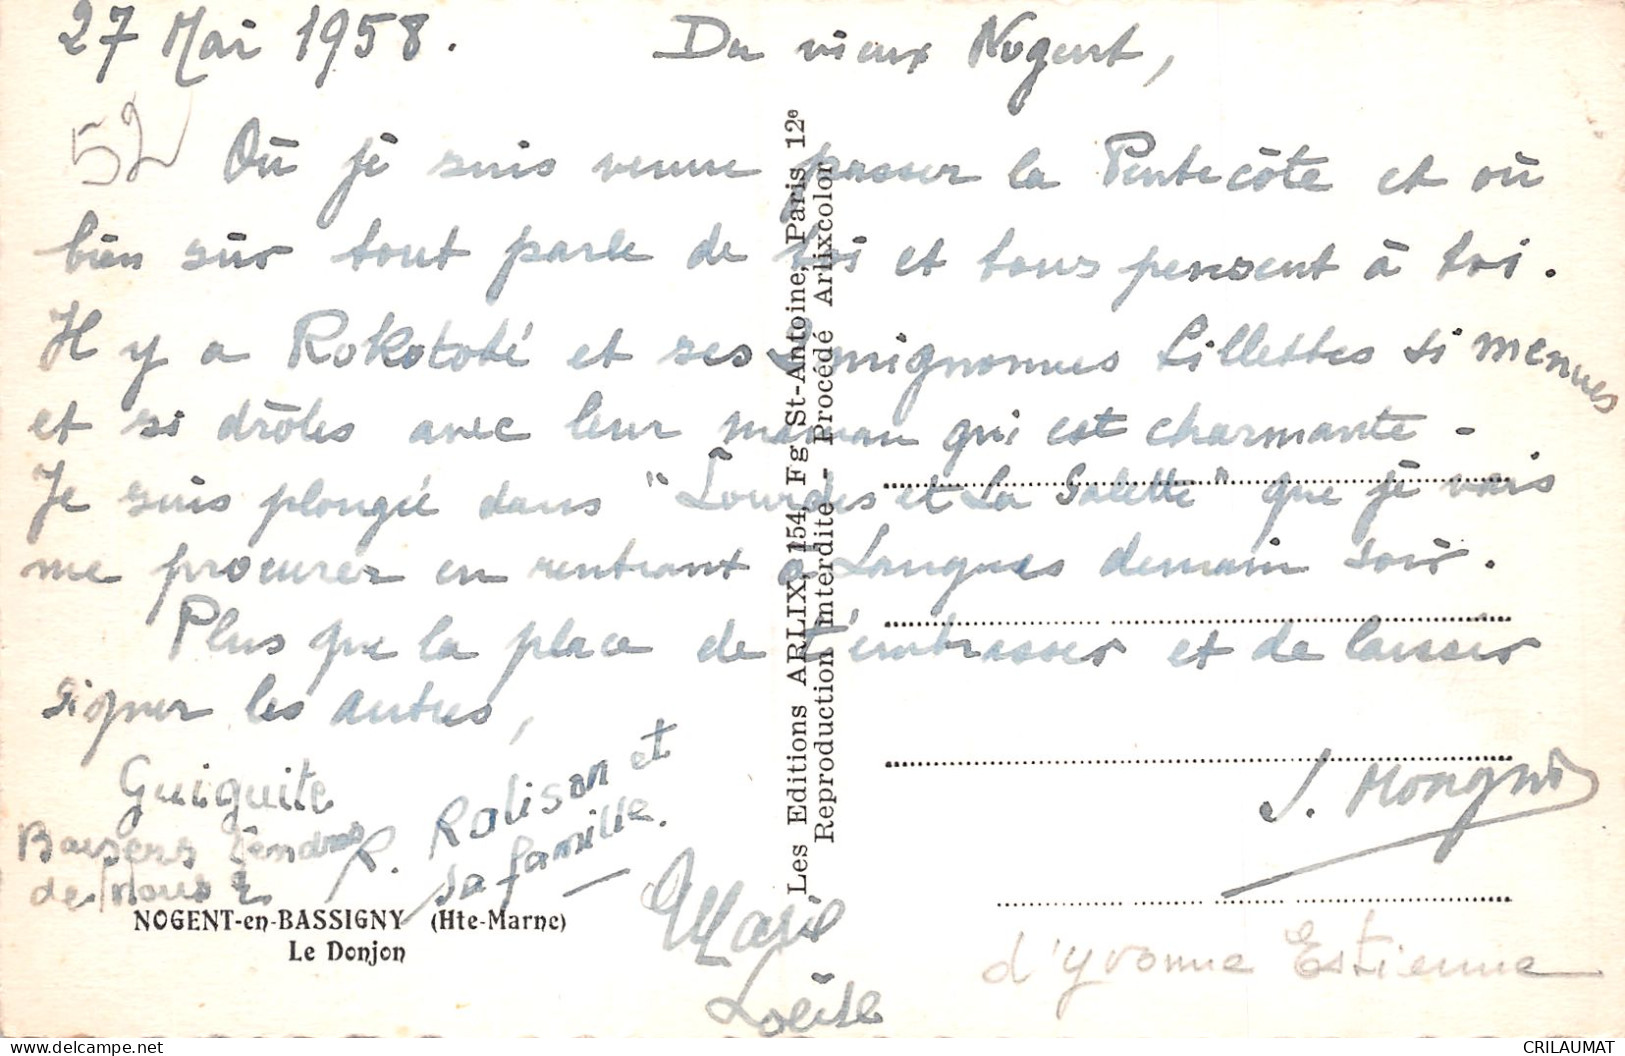 27 Mai 1958. Du vieux Nogent,
52
Où je suis venue passer la Pentecôte et où
bien sûr tout parle de toi et tous pensent à toi.
Il y a Rokotobé et ses 2 mignonnes Lillettes si menues
et si drôles avec leur maman qui est charmante -
Je suis plongée dans "Lourdes et La Salette" que je vais
me procurer en rentrant à Langres demain soir.
Plus que la place de t'embrasser et de laisser
signer les autres,
Guiguite
Baisers tendres
de nous 2
R. Ralison et
sa famille.
J. Mongin
Marie
d'Yvonne Estienne
NOGENT-en-BASSIGNY (Hte-Marne)
Le Donjon
Les Editions ARLIX, 154, Fg St-Antoine, Paris 12e
Reproduction interdite - Procédé Arlixcolor
CRILAUMAT